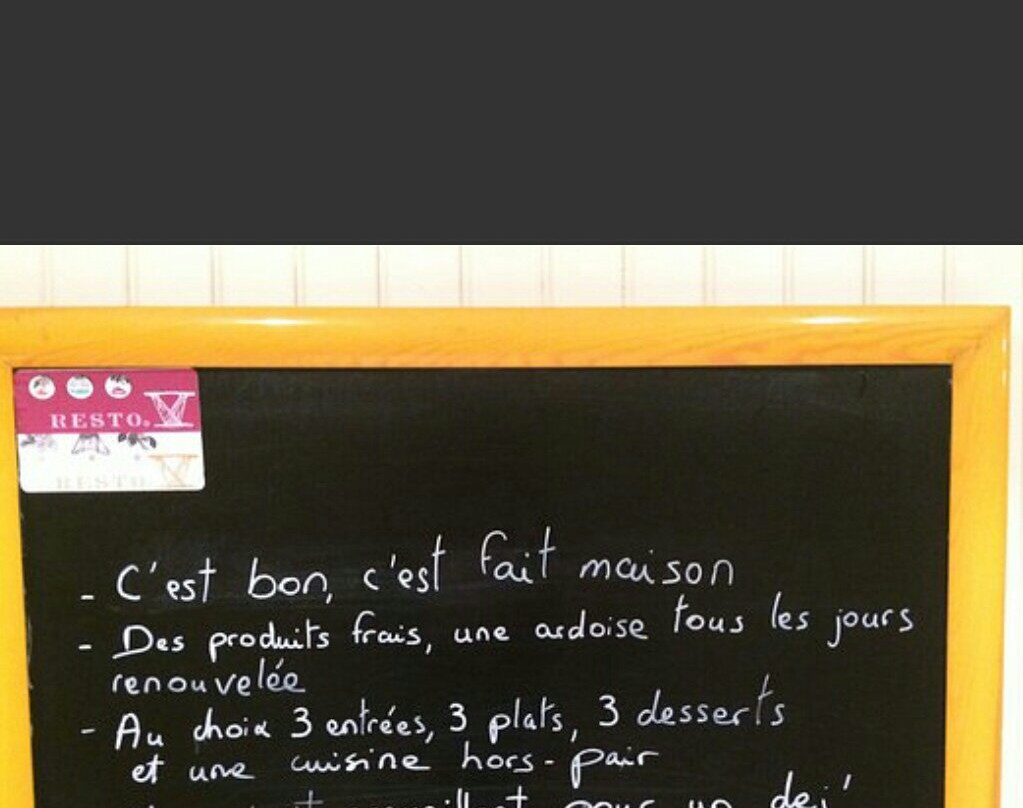 RESTO.
RESTO
- C'est bon, c'est fait maison
- Des produits frais, une ardoise tous les jours
renouvelée
- Au choix 3 entrées, 3 plats, 3 desserts
et une cuisine hors-pair
pour un dej'